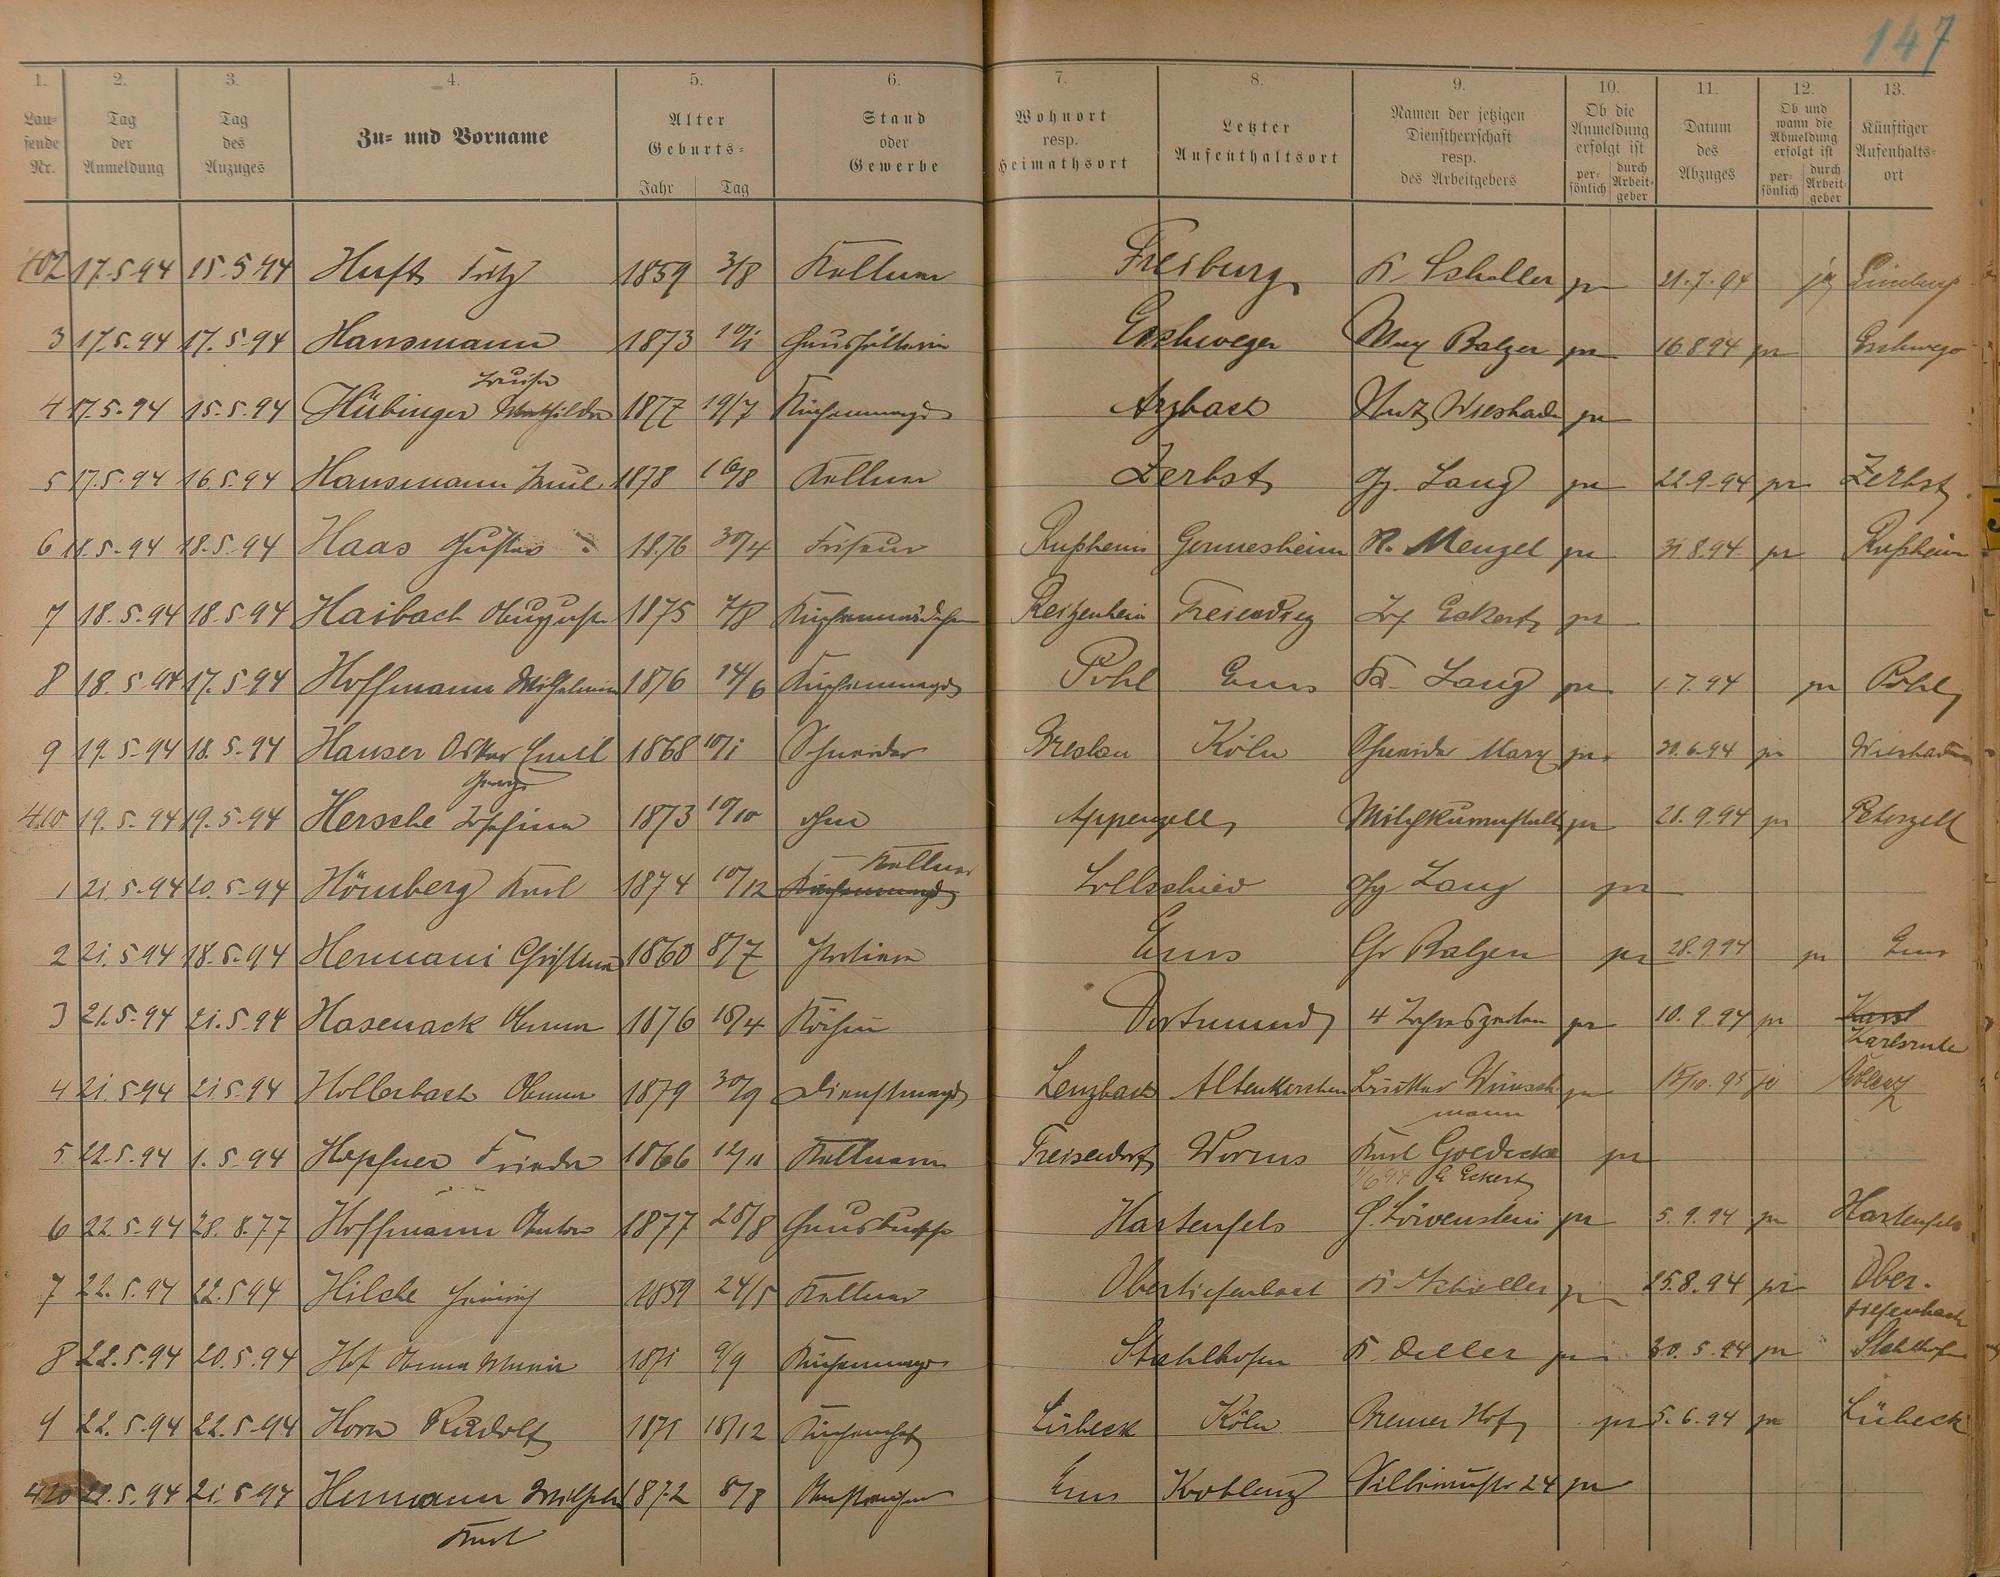 147
1. 2. 3. 4. 5. 6. 7. 8. 9. 10. 11. 12. 13.
Laufende Nr. Tag der Anmeldung Tag des Anzuges Zu- und Vorname Alter Geburts- Jahr Tag Stand oder Gewerbe Wohnort resp. Heimathsort Letzter Aufenthaltsort Namen der jetzigen Dienstherrschaft resp. des Arbeitgebers Ob die Anmeldung erfolgt ist persönlich durch Arbeitgeber Datum des Abzuges Ob und wann die Abmeldung erfolgt ist persönlich durch Arbeitgeber Künftiger Aufenhalts-ort
402 17.5.94 15.5.94 Huft Fritz 1859 3/8 Kellner Freiburg K. Schaller pr 21.7.94
3 17.5.94 17.5.94 Hansmann 1873 Haushälterin Eschwege Max Balzer pr 16.8.94 pr Eschwege
Louise
4 17.5.94 15.5.94 Hübinger Mathilde 1877 19/7 Küchenmagd Arzbach Wiesbaden pr
5 17.5.94 16.5.94 Hansmann 1878 16/8 Kellner Zerbst Gg. Lang pr 22.9.94 pr Zerbst
6 18.5.94 18.5.94 Haas Gustav 1876 30/4 Friseur Rußheim Germesheim R. Menzel pr 31.8.94 pr Rußheim
7 18.5.94 18.5.94 Haibach August 1875 7/8 Küchenmädchen Reitzenhein Freiendiez Eckert pr
8 18.5.94 17.5.94 Hoffmann Wilhelmine 1876 14/6 Küchenmagd Pohl Ems Lang pr 1.7.94 pr Pohl
9 19.5.94 18.5.94 Hauser Oskar Emil 1868 10/1 Schneider Breslau Köln Schneider Marx pr 30.6.94 pr Wiesbaden
Georg
410 19.5.94 19.5.94 Hersche Josefina 1873 10/10 ohne Appenzell Milchkuranstalt pr 28.9.94 pr Peterzell
Kellner
1 21.5.94 20.5.94 Hömberg Karl 1874 10/12 Küchenmagd Lollschied Gg Lang pr
2 21.5.94 18.5.94 Hermani Christina 1860 8/7 Ems Chr Balzer pr 28.9.94 pr Ems
3 21.5.94 21.5.94 Hasenack Anna 1876 18/4 Köchin Dortmund 4 Jahreszeiten pr 10.9.94 pr Karst
Karlsruhe
4 21.5.94 21.5.94 Hollerbach Anna 1879 30/9 Dienstmagd Lenzbach Altenkirchen Wünsch- pr 15/10.95 Coblenz
mann
5 22.5.94 1.5.94 Hepfner Frieda 1866 12/11 Kellnerin Freisendorf Worms Karl Goedecke pr
1/6 94 Eckert
6 22.5.94 28.8.77 Hoffmann Anton 1877 28/8 Hausbursche Hartenfels G. Löwenstein pr 5.9.94 pr Hartenfels
7 22.5.94 22.5.94 Hilche 1859 24/5 Kellner Obertiefenbach K Schaller pr 25.8.94 pr Ober-
tiefenbach
8 22.5.94 20.5.94 Hof Anna Maria 1871 9/9 Küchenmagd Stahlhofen K. Deller pr 30.5.94 pr Stahlhofen
9 22.5.94 22.5.94 Horn Rudolf 1871 18/12 Küchenchef Lübeck Köln Bremer Hof pr 5.6.94 pr Lübeck
420 22.5.94 21.5.94 Hermann Wilhelm 1872 8/8 Ems Koblenz 24 pr
Karl